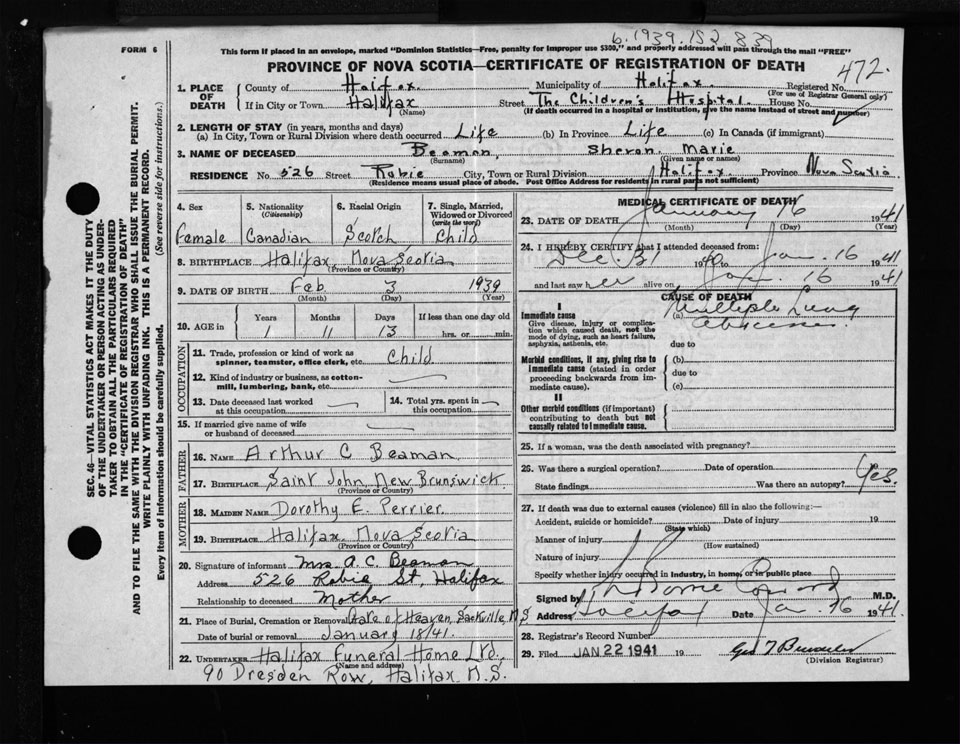 6.1939.152 839
FORM 6
This form if placed in an envelope, marked "Dominion Statistics—Free, penalty for improper use $300," and properly addressed will pass through the mail "FREE"
PROVINCE OF NOVA SCOTIA—CERTIFICATE OF REGISTRATION OF DEATH
472.
1. PLACE OF DEATH
County of Halifax. Municipality of Halifax. Registered No.
(For use of Registrar General only)
If in City or Town Halifax Street The Children's Hospital. House No.
(Name) (If death occurred in a hospital or institution, give the name instead of street and number)
2. LENGTH OF STAY (in years, months and days)
(a) In City, Town or Rural Division where death occurred Life (b) In Province Life (c) In Canada (if immigrant)
3. NAME OF DECEASED Beaman, Sharon Marie
(Surname) (Given name or names)
RESIDENCE No. 526 Street Robie City, Town or Rural Division Halifax Province Nova Scotia
(Residence means usual place of abode. Post Office Address for residents in rural parts not sufficient)
4. Sex
Female
5. Nationality (Citizenship)
Canadian
6. Racial Origin
Scotch
7. Single, Married, Widowed or Divorced (write the word)
Child
8. BIRTHPLACE Halifax Nova Scotia
(Province or Country)
9. DATE OF BIRTH Feb 3 1939
(Month) (Day) (Year)
10. AGE in Years Months Days If less than one day old
1 11 13 hrs. or min.
OCCUPATION
11. Trade, profession or kind of work as spinner, teamster, office clerk, etc. Child.
12. Kind of industry or business, as cotton-mill, lumbering, bank, etc.
13. Date deceased last worked at this occupation
14. Total yrs. spent in this occupation
15. If married give name of wife or husband of deceased
FATHER
16. NAME Arthur C Beaman
17. BIRTHPLACE Saint John, New Brunswick
(Province or Country)
MOTHER
18. MAIDEN NAME Dorothy E. Perrier
19. BIRTHPLACE Halifax Nova Scotia
(Province or Country)
20. Signature of informant Mrs A.C. Beaman
Address 526 Robie St, Halifax
Relationship to deceased Mother
21. Place of Burial, Cremation or Removal Gate of Heaven, Sackville, N.S
Date of burial or removal January 18/41.
22. UNDERTAKER Halifax Funeral Home Ltd,
(Name and address)
90 Dresden Row, Halifax N.S.
MEDICAL CERTIFICATE OF DEATH
23. DATE OF DEATH January 16 1941
(Month) (Day) (Year)
24. I HEREBY CERTIFY that I attended deceased from:
Dec. 31 1940 Jan. 16 1941
and last saw her alive on Jan. 16 1941
CAUSE OF DEATH
I
Immediate cause (a) Multiple Lung
Abscesses.
Give disease, injury or complication which caused death, not the mode of dying, such as heart failure, asphyxia, asthenia, etc.
due to
Morbid conditions, if any, giving rise to immediate cause (stated in order proceeding backwards from immediate cause).
(b)
due to
(c)
II
Other morbid conditions (if important) contributing to death but not causally related to immediate cause.
25. If a woman, was the death associated with pregnancy?
26. Was there a surgical operation? Date of operation
State findings Was there an autopsy? Yes.
27. If death was due to external causes (violence) fill in also the following:—
Accident, suicide or homicide? Date of injury 19
(State which)
Manner of injury
(How sustained)
Nature of injury
Specify whether injury occurred in industry, in home, or in public place
Signed by M.D.
Address Halifax Date Jan. 16 1941.
28. Registrar's Record Number
29. Filed JAN 22 1941 19
(Division Registrar)
SEC. 46—VITAL STATISTICS ACT MAKES IT THE DUTY
OF THE UNDERTAKER OR PERSON ACTING AS UNDER-
TAKER TO OBTAIN ALL THE PARTICULARS REQUIRED
IN THE "CERTIFICATE OF REGISTRATION OF DEATH"
AND TO FILE THE SAME WITH THE DIVISION REGISTRAR WHO SHALL ISSUE THE BURIAL PERMIT.
WRITE PLAINLY WITH UNFADING INK. THIS IS A PERMANENT RECORD.
Every item of information should be carefully supplied. (See reverse side for instructions.)